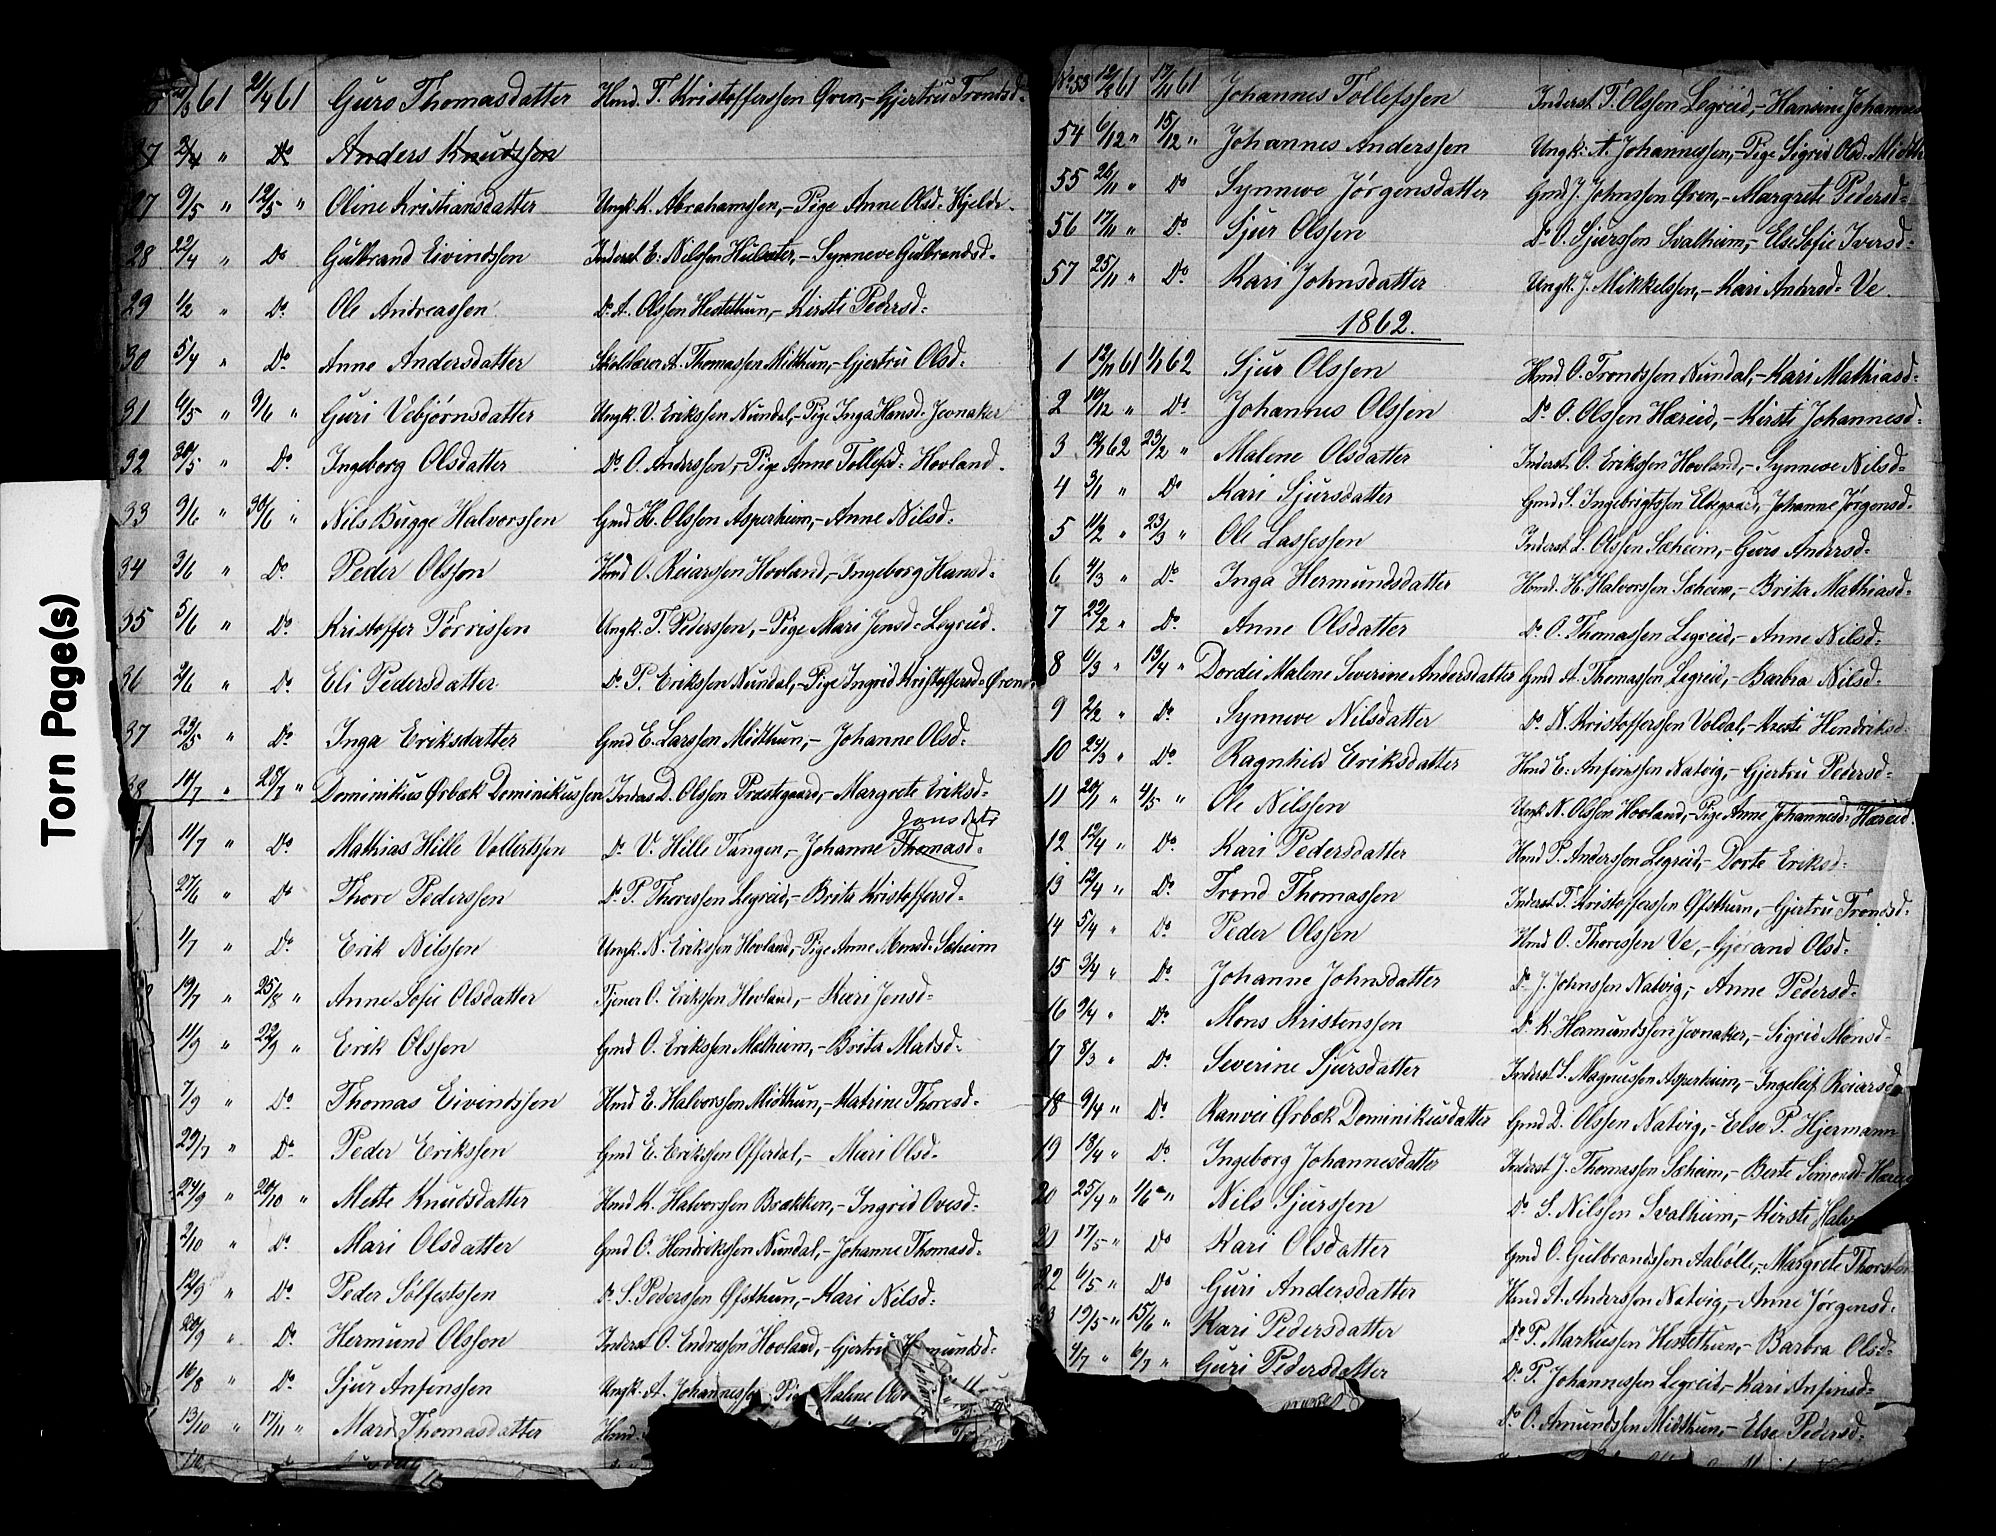 Torn Page(s)
61 21/4 61 Guro Thomasdatter Hmd. T. Kristofferssen Øren,- Gjertru Trondsd-
27 2/4 " Do Anders Knudssen
27 9/5 " 12/5 " Oline Kristiansdatter Ungk. K. Abrahamssen,- Pige Anne Olsd- Hjelde.
28 22/4 " Do Gulbrand Eivindssen Inderst E. Nilssen Hulsæter,- Synneve Gulbrandsd-
29 1/2 " Do Ole Andreassen Do A. Olssen Hestethun,- Kirsti Pedersd-
30 5/4 " Do Anne Andersdatter Skolelærer A. Thomassen Midthun,- Gjertru Olsd-
31 6/5 " 9/6 " Guri Vebjørnsdatter Ungk. V. Erikssen Nundal,- Pige Inga Hansd- Jevnaker
32 30/5 " Do Ingeborg Olsdatter Do O. Anderssen,- Pige Anne Tollefsd- Hovland.
33 9/6 " 30/6 " Nils Bugge Halvorssen Gmd H. Olssen Asperheim,- Anne Nilsd-
34 3/6 " Do Peder Olsson Hmd O. Reiarssen Hovland,- Ingeborg Hansd-
35 5/6 " Do Kristoffer Tørrissen Ungk. T. Pederssen,- Pige Mari Jensd- Legreid.
36 2/6 " Do Eli Pedersdatter Do P. Erikssen Nundal,- Pige Ingrid Kristoffersd- Øren
37 23/5 " Do Inga Eriksdatter Gmd E. Larssen Midthun,- Johanne Olsd-
38 10/7 " 28/7 " Dominikus Ørbæk Dominikussen Inders D. Olssen Præstegaard,- Margrete Eriksd-
Jonsdatr
11/7 " Do Mathias Hille Vollertssen Do V. Hille Tangen,- Johanne Thomasd-
27/6 " Do Thore Pederssen Do P. Thoressen Legreid,- Brita Kristoffersd-
1/7 " Do Erik Nilssen Ungk. N. Erikssen Hovland,- Pige Anne Monsd- Sæheim
19/7 " 25/8 " Anne Sofie Olsdatter Tjener O. Erikssen Hovland,- Kari Jensd-
11/9 " 22/9 " Erik Olssen Gmd O. Erikssen Melheim,- Brita Madsd-
7/9 " Do Thomas Eivindssen Hmd E. Halvorssen Midthun,- Katrine Thoresd-
29/7 " Do Peder Erikssen Gmd E. Erikssen Offerdal,- Mari Olsd-
24/9 " 20/10 " Mette Knudsdatter Hmd K. Halvorssen Brækken,- Ingrid Ovesd-
2/10 " Do Mari Olsdatter Gmd O. Hendrikssen Nundal,- Johanne Thomasd-
12/9 " Do Peder Sølfestssen Do S. Pederssen Øfsthun,- Kari Nilsd-
20/9 " Do Hermund Olssøn Inderst O. Endressen Hovland,- Gjertru
16/8 " Do Sjur Anfinssen Ungk. A. Johannessen Pige Malene
13/10 " 17/11 " Mari Thomasdatter Hmd.
No 53 61 17/11 61 Johannes Tollefssen Inderst T. Olssen Legreid,- Hansine Johannes
54 6/12 " 15/12 " Johannes Anderssen Ungk. A. Johannessen,- Pige Sigrid Olsd- Midth
55 26/11 " Do Synneve Jørgensdatter Gmd J. Johnssen Øren,- Margrete Pedersd-
56 17/11 " Do Sjur Olssen Do O. Sjurssen Svalheim,- Else Sofie Iversd-
57 25/11 " Do Kari Johnsdatter Ungk. J. Mikkelssen,- Kari Andersd- Ve.
1862.
1 12/11 61 1/1 62 Sjur Olssen Hmd O. Trondssen Nundal,- Kari Mathiasd-
2 10/12 " Do Johannes Olssen Do O. Olssen Hæreid,- Kirsti Johannesd-
3 12/1 62 23/2 " Malene Olsdatter Inderst O. Erikssen Hovland,- Synneve Nilsd-
4 3/1 " Do Kari Sjursdatter Gmd S. Ingebrigtssen Eldegaard, Johanne Jørgensd-
5 11/2 " 23/3 " Ole Lassessen Inderst L. Olssen Sæheim,- Guro Andersd-
6 4/3 " Do Inga Hermundsdatter Hmd. H. Halvorssen Sæheim,- Brita Mathiasd-
7 22/2 " Do Anne Olsdatter Do O. Thomassen Legreid,- Anne Nilsd-
8 6/3 " 13/4 " Dordei Malene Severine Andersdatter Gmd A. Thomassen Legreid,- Barbra Nilsd-
9 2/2 " Do Synneve Nilsdatter Do N. Kristofferssen Voldal,- Kresti Hendriksd-
10 24/3 " Do Ragnhild Eriksdatter Hmd E. Anfinssen Natvig,- Gjertru Pedersd-
11 20/1 " 4/5 " Ole Nilssen Ungk N. Olssen Hovland,- Pige Anne Johannesd- Hæreid.
12 12/4 " Do Kari Pedersdatter Hmd P. Anderssen Legreid,- Dorte Eriksd-
13 12/4 " Do Trond Thomassen Inderst T. Kristofferssen Øfsthun,- Gjertru Trondsd-
14 5/4 " Do Peder Olssen Hmd O. Thoressen Ve,- Gjørand Olsd-
15 3/4 " Do Johanne Johnsdatter Do J. Johnssen Natvig,- Anne Pedersd-
16 9/4 " Do Mons Kristenssen Do K. Hermundssen Jevnaker,- Sigrid Monsd-
17 8/3 " Do Severine Sjursdatter Inderst S. Magnussen Asperheim,- Ingeleif Reiarsd-
18 9/4 " Do Ranvei Ørbæk Dominikusdatter Gmd D. Olssen Natvig,- Else P. Hjermann
19 18/4 " Do Ingeborg Johannesdatter Inderst J. Thomassen Sæheim,- Berte Simonsd- Hæreid
20 25/4 " 1/6 " Nils Sjurssen Do S. Nilssen Svalheim,- Kirsti Halv
20 17/5 " Do Kari Olsdatter Gmd O. Gulbrandssen Aabølle,- Margrete Thorsten
22 6/5 " Do Guri Andersdatter Hmd A. Anderssen Natvig,- Anne Jørgensd-
19/5 " 15/6 " Kari Pedersdatter Do P. Markussen Hestethun,- Barbra Olsd-
4/7 " 6/7 " Guri Pedersdatter Do P. Johannessen Legreid,- Kari Anfinsd-
Do O. Amundssen Midthun,- Else Pedersd-